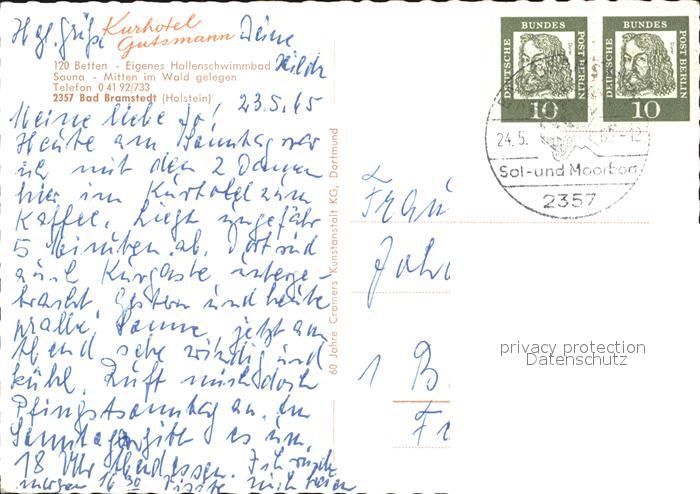 Hgl. Grüße
Deine
Hilde
Kurhotel
Gutsmann
120 Betten - Eigenes Hallenschwimmbad
Sauna - Mitten im Wald gelegen
Telefon 0 41 92/733
2357 Bad Bramstedt (Holstein)
23.5.65
Meine liebe Jo!
Heute am Sonntag war
ich mit den 2 Damen
hier im Kurhotel zum
Kaffee. Liegt ungefähr
5 Minuten ab. Dort sind
auch Kurgäste unterge-
bracht. Gestern und heute
pralle Sonne, jetzt am
Abend sehr windig und
kühl. Ruft mich doch
Pfingstsonntag an. Am
Sonntag gibt es um
18 Uhr Abendessen. Ich
morgen 16 30 mich
60 Jahre Cramers Kunstanstalt KG, Dortmund
DEUTSCHE BUNDES POST BERLIN
Dürer
10
DEUTSCHE BUNDES POST BERLIN
Dürer
10
24.5. 65-12
Sol-und Moorbad
2357
Frau
Joh
1 B
Fr
privacy protection
Datenschutz